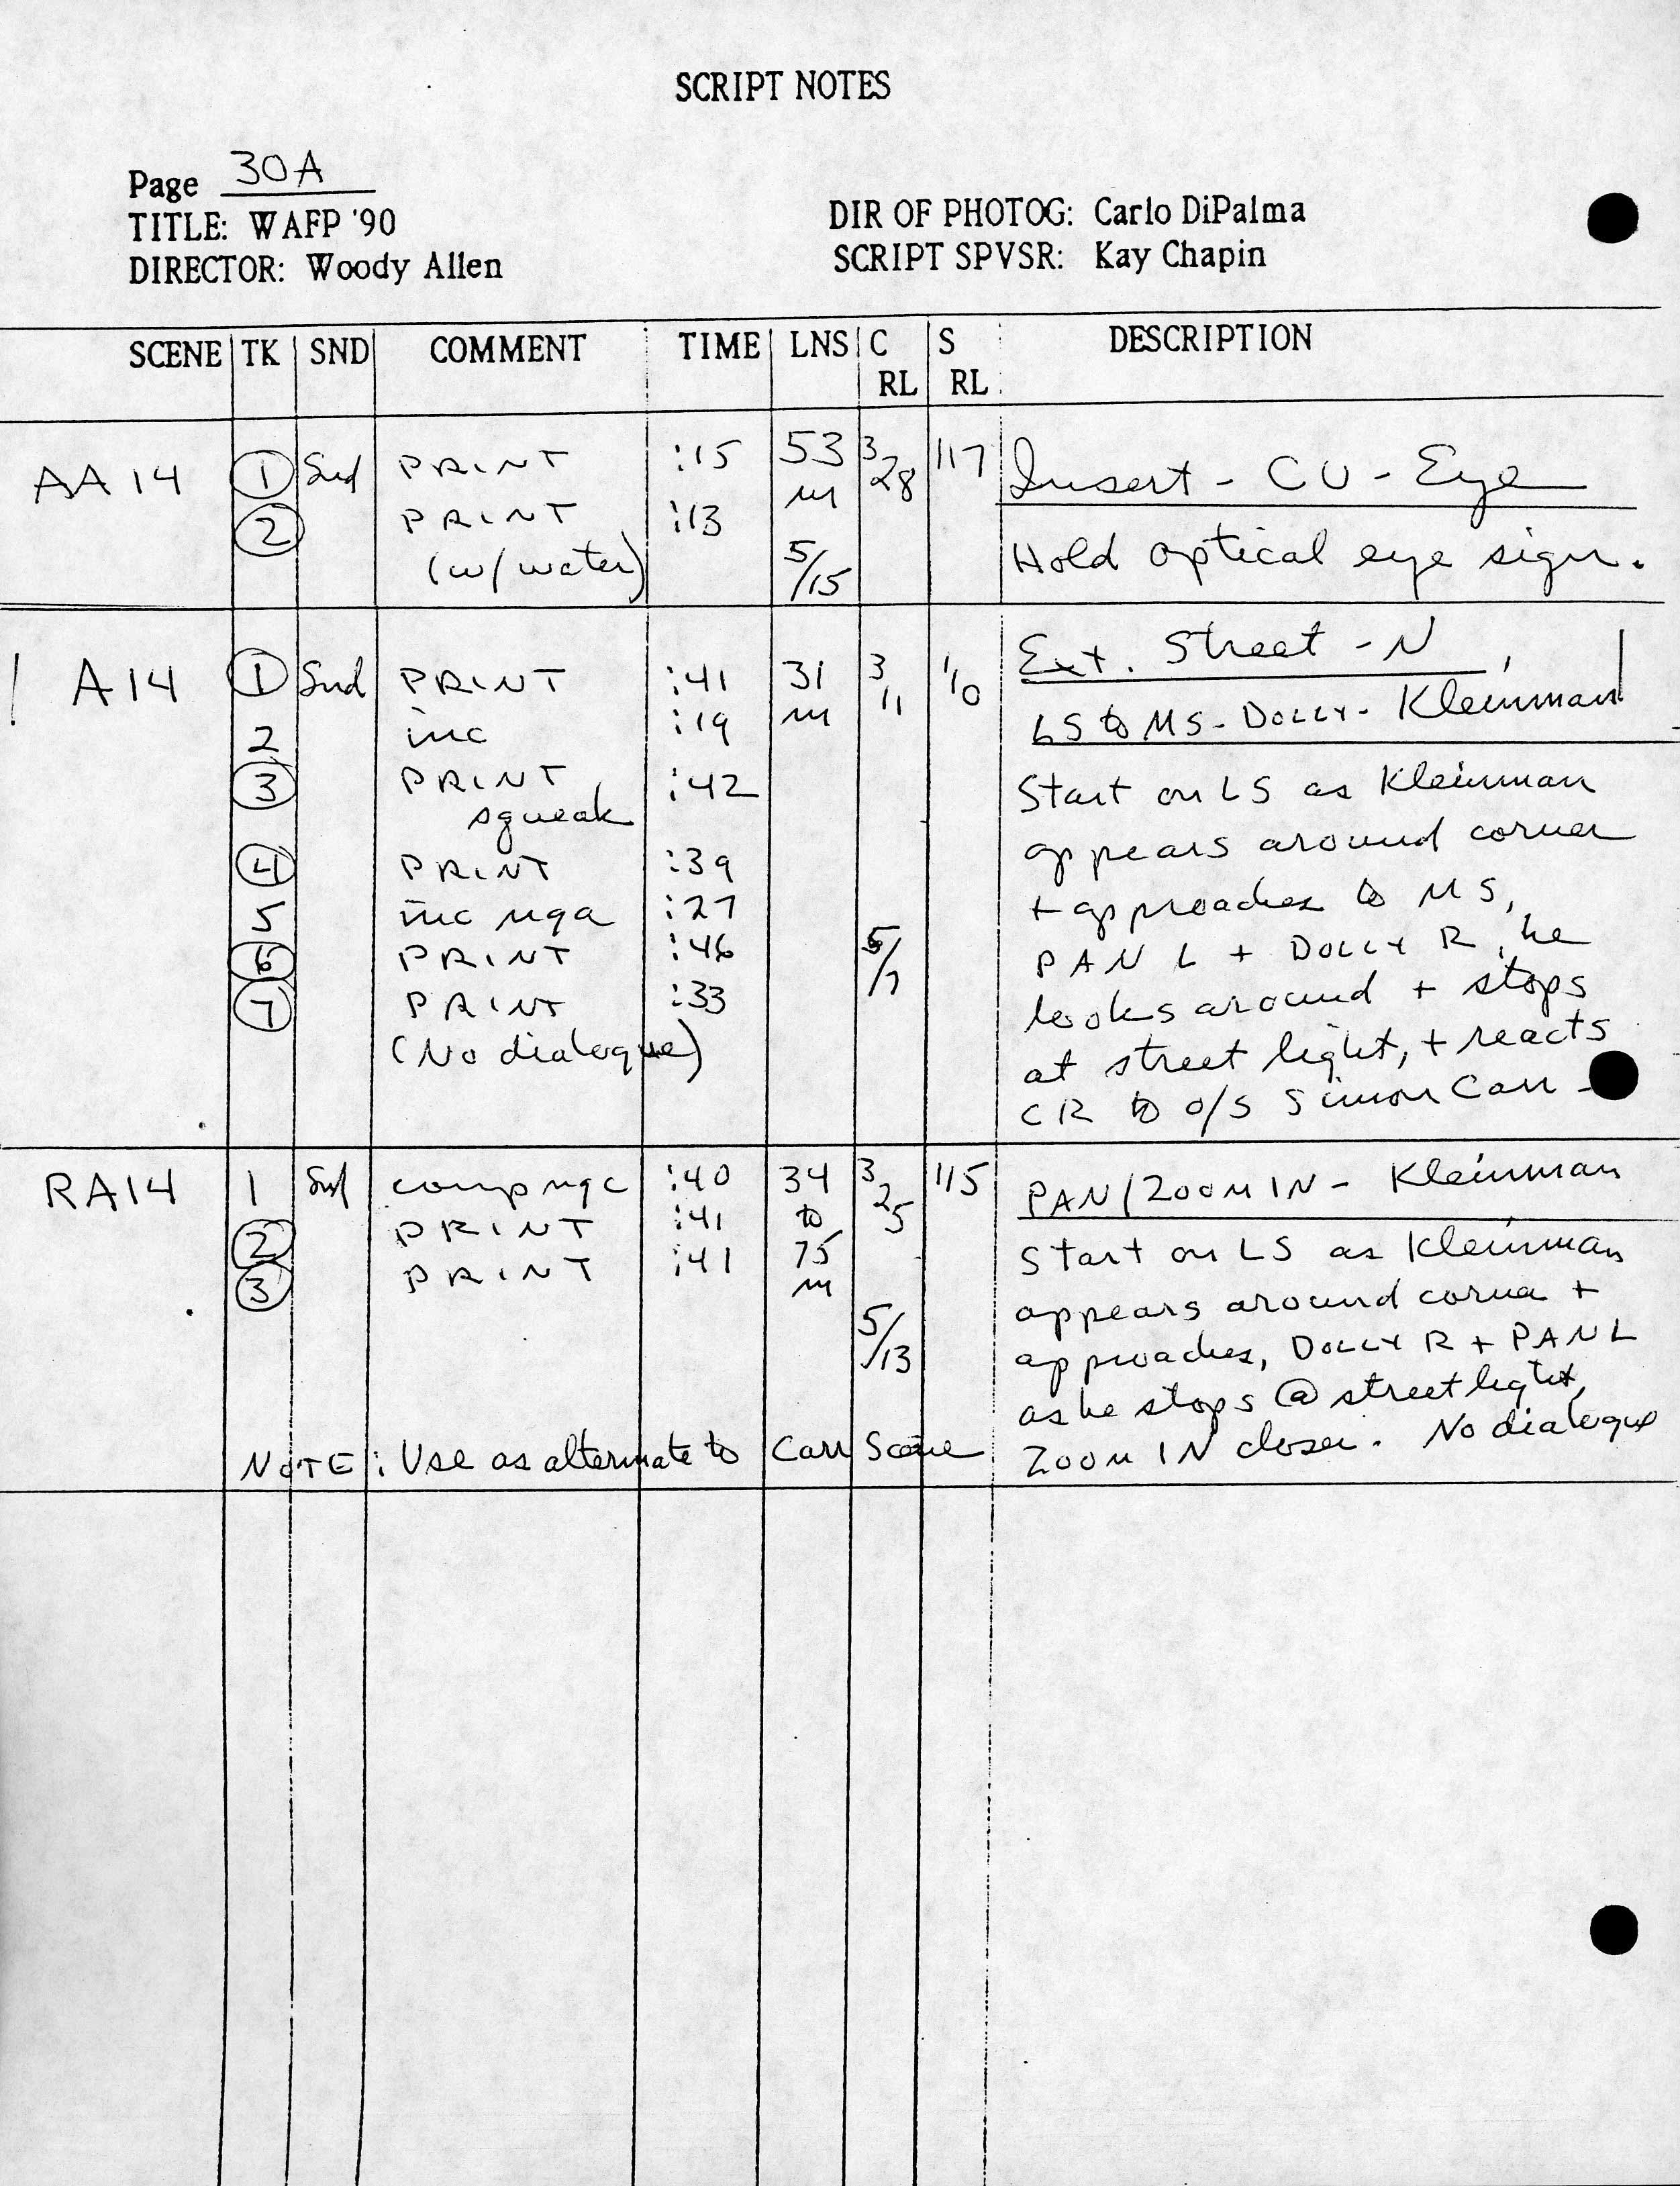 SCRIPT NOTES
Page 30A
TITLE: WAFP '90
DIRECTOR: Woody Allen
DIR OF PHOTOG: Carlo DiPalma
SCRIPT SPVSR: Kay Chapin
SCENE TK SND COMMENT TIME LNS C RL S RL DESCRIPTION
AA14 1 Snd PRINT :15 53 m 3/28 117 Insert - CU - Eye
2 PRINT :13
(w/ water) 5/15 Hold optical eye sign.
A14 1 Snd PRINT :41 31 m 3/11 Ext. Street - N
2 inc :19 LS to MS - DOLLY - Kleinman
3 PRINT :42 Start on LS as Kleinman
squeak appears around corner
4 PRINT :39 + approaches to MS,
5 inc nga :27 PAN L + DOLLY R, he
6 PRINT :46 5/7 looks around + stops
7 PRINT :33 at street light, + reacts
(No dialogue) CR to o/s Simon Carr -
RA14 1 Snd comp ngc :40 34 to 75 m 3/25 115 PAN/ZOOM IN - Kleinman
2 PRINT :41 Start on LS as Kleinman
3 PRINT :41 appears around corner +
5/13 approaches, DOLLY R + PAN L
as he stops @ streetlight,
NOTE: Use as alternate to Carr Scene ZOOM IN closer. No dialogue